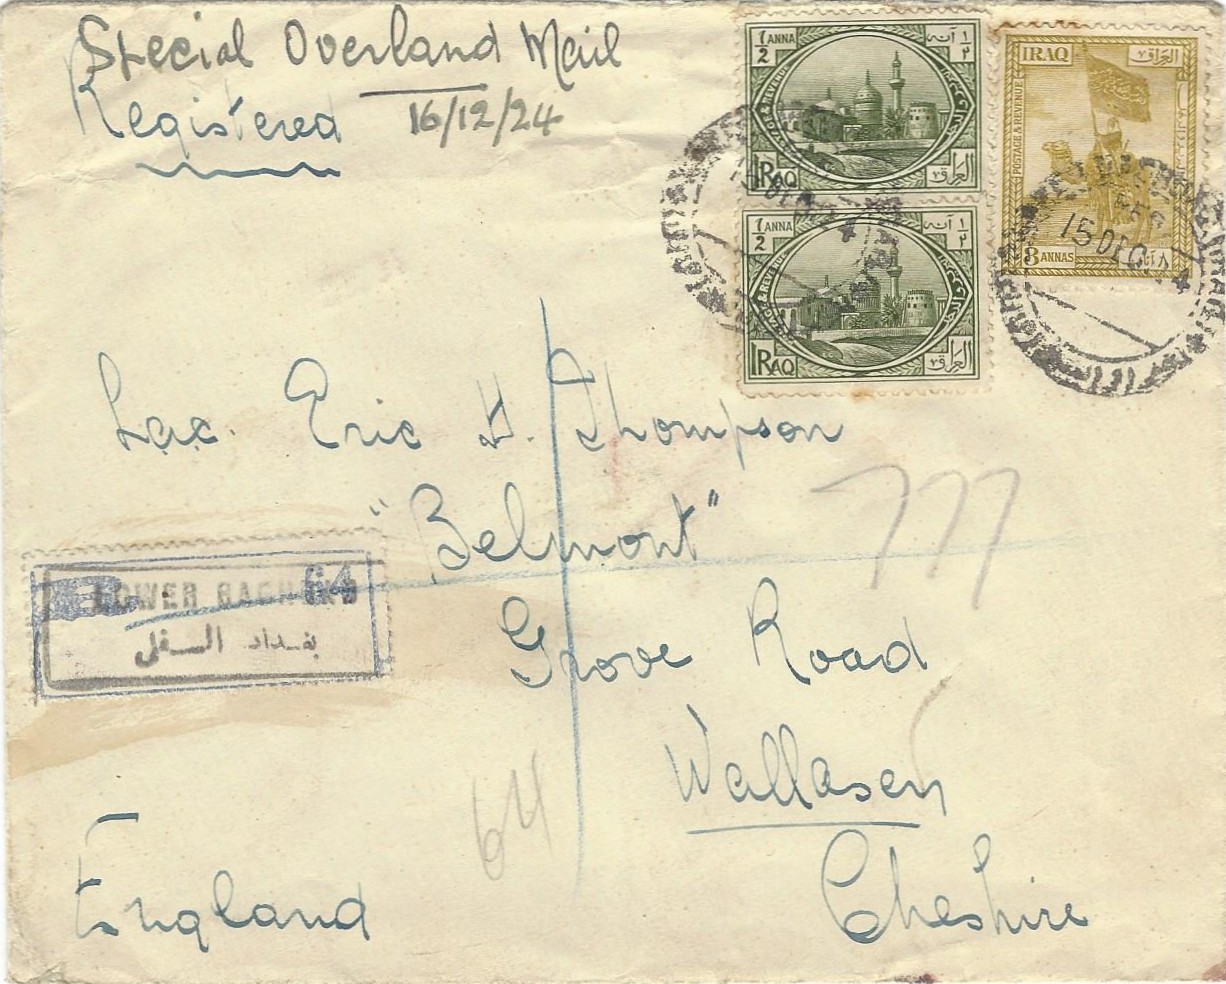 Special Overland Mail
Registered 16/12/24
1/2 ANNA ١/٢ آنه
POSTAGE & REVENUE
IRAQ العراق
1/2 ANNA ١/٢ آنه
POSTAGE & REVENUE
IRAQ العراق
IRAQ العراق
POSTAGE & REVENUE
8 ANNAS
15 DEC
15 DEC
Lac. Eric H. Thompson
"Belmont"
777
LOWER BAGHDAD 64
بغداد السفلى
Grove Road
Wallasey
64
Cheshire
England